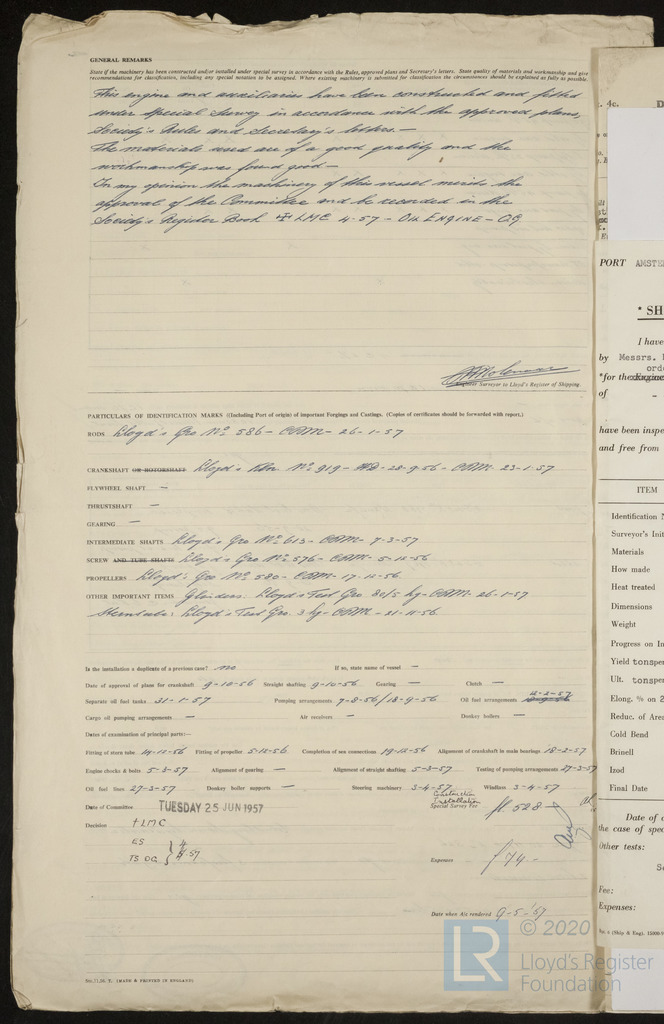 GENERAL REMARKS
State if the machinery has been constructed and/or installed under special survey in accordance with the Rules, approved plans and Secretary's letters. State quality of materials and workmanship and give
recommendations for classification, including any special notation to be assigned. Where existing machinery is submitted for classification the circumstances should be explained as fully as possible.
This engine and auxiliaries have been constructed and fitted
under special survey in accordance with the approved plans,
Society's Rules and Secretary's letters. —
The materials used are of a good quality and the
workmanship was found good —
In my opinion the machinery of this vessel merits the
approval of the Committee and be recorded in the
Society's Register Book ✠ LMC 4.57 - OIL ENGINE - OG
Engineer Surveyor to Lloyd's Register of Shipping.
PARTICULARS OF IDENTIFICATION MARKS (Including Port of origin) of important Forgings and Castings. (Copies of certificates should be forwarded with report.)
RODS Lloyd's Gro No 586 - - 26-1-57
CRANKSHAFT OR ROTORSHAFT Lloyd's No 919 - - 28-9-56 - - 23-1-57
FLYWHEEL SHAFT —
THRUSTSHAFT —
GEARING —
INTERMEDIATE SHAFTS Lloyd's Gro No 613 - - 7-3-57
SCREW AND TUBE SHAFTS Lloyd's Gro No 576 - - 5-12-56
PROPELLERS Lloyd's Gro No 580 - - 17-12-56
OTHER IMPORTANT ITEMS Lloyd's Test Gro 30/5 kg - - 26-1-57
Sterntube: Lloyd's Test Gro. 3 kg - - 21-11-56
Is the installation a duplicate of a previous case? no If so, state name of vessel —
Date of approval of plans for crankshaft 9-10-56 Straight shafting 9-10-56 Gearing — Clutch —
Separate oil fuel tanks 31-1-57 Pumping arrangements 7-8-56/18-9-56 Oil fuel arrangements 12-2-57
Cargo oil pumping arrangements — Air receivers — Donkey boilers —
Dates of examination of principal parts:—
Fitting of stern tube 14-12-56 Fitting of propeller 5-12-56 Completion of sea connections 19-12-56 Alignment of crankshaft in main bearings 18-2-57
Engine chocks & bolts 5-3-57 Alignment of gearing — Alignment of straight shafting 5-3-57 Testing of pumping arrangements 27-3-57
Oil fuel lines 27-3-57 Donkey boiler supports — Steering machinery 3-4-57 Windlass 3-4-57
Date of Committee TUESDAY 25 JUN 1957
Construction
Installation
Special Survey Fee fl 528 -
Decision +LMC
ES
TS OG } 4.57
Expenses f 74 -
Date when A/c rendered 9-5-'57
© 2020
LR
Lloyd's Register
Foundation
(MADE & PRINTED IN ENGLAND)
4c.
PORT AMSTE
* SH
I have
by Messrs.
orde
*for the
of -
have been inspe
and free from
ITEM
Identification N
Surveyor's Init
Materials
How made
Heat treated
Dimensions
Weight
Progress on In
Yield tonsper
Ult. tonsper
Elong. % on 2
Reduc. of Area
Cold Bend
Brinell
Izod
Final Date
Date of c
the case of spec
Other tests:
Fee:
Expenses:
(Ship & Eng).